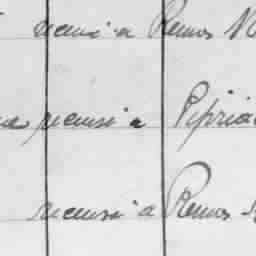 recensé à Rennes
recensé à Pipria
recensé à Rennes